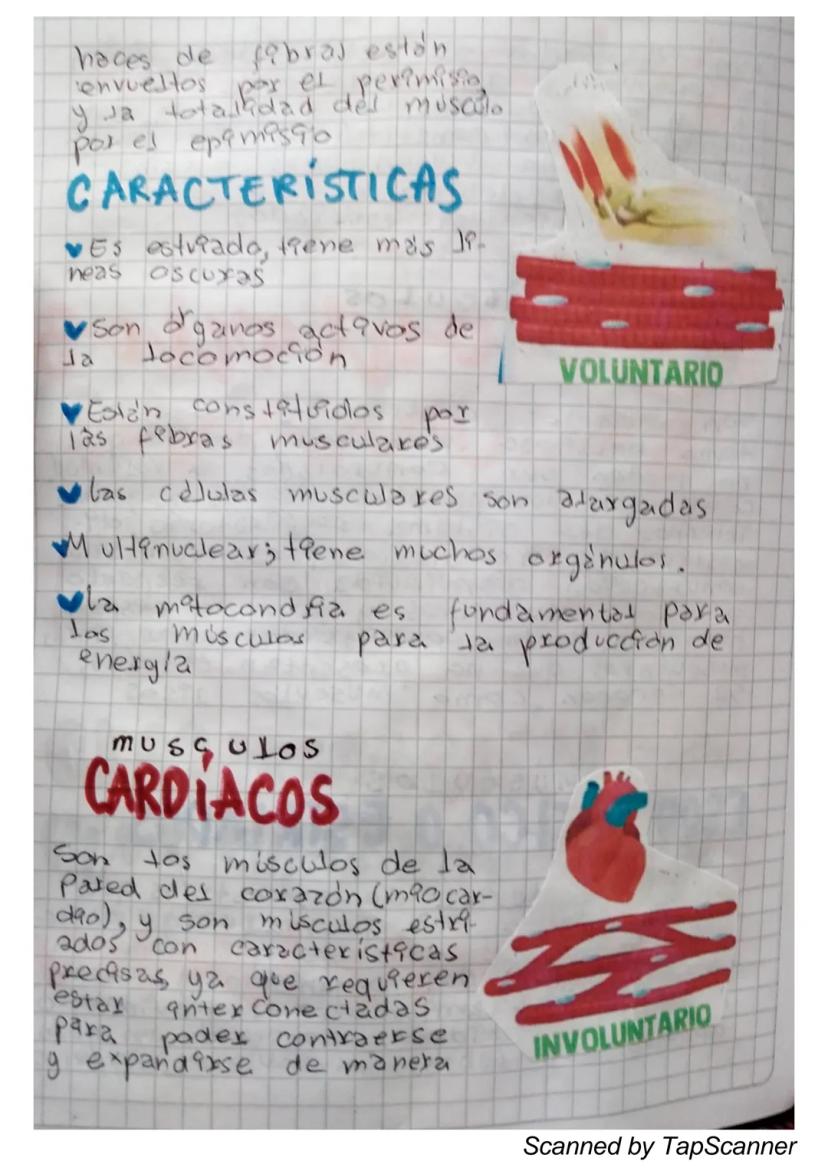 haces de fibras están
envueltos por el perimisio,
y la totalidad del músculo
por el epimisio
CARACTERÍSTICAS
Es estriado, tiene más lí-
neas oscuras
Son órganos activos de
la locomoción
Están constituidos por
las fibras musculares
Las células musculares son alargadas
Multinuclear; tiene muchos orgánulos.
La mitocondria es fundamental para
los músculos para la producción de
energía
VOLUNTARIO
musculos
CARDÍACOS
Son los músculos de la
Pared del corazón (miocar-
dio), y son músculos estri-
ados con características
precisas, ya que requieren
estar interconectadas
para poder contraerse
y expandirse de manera
INVOLUNTARIO
Scanned by TapScanner